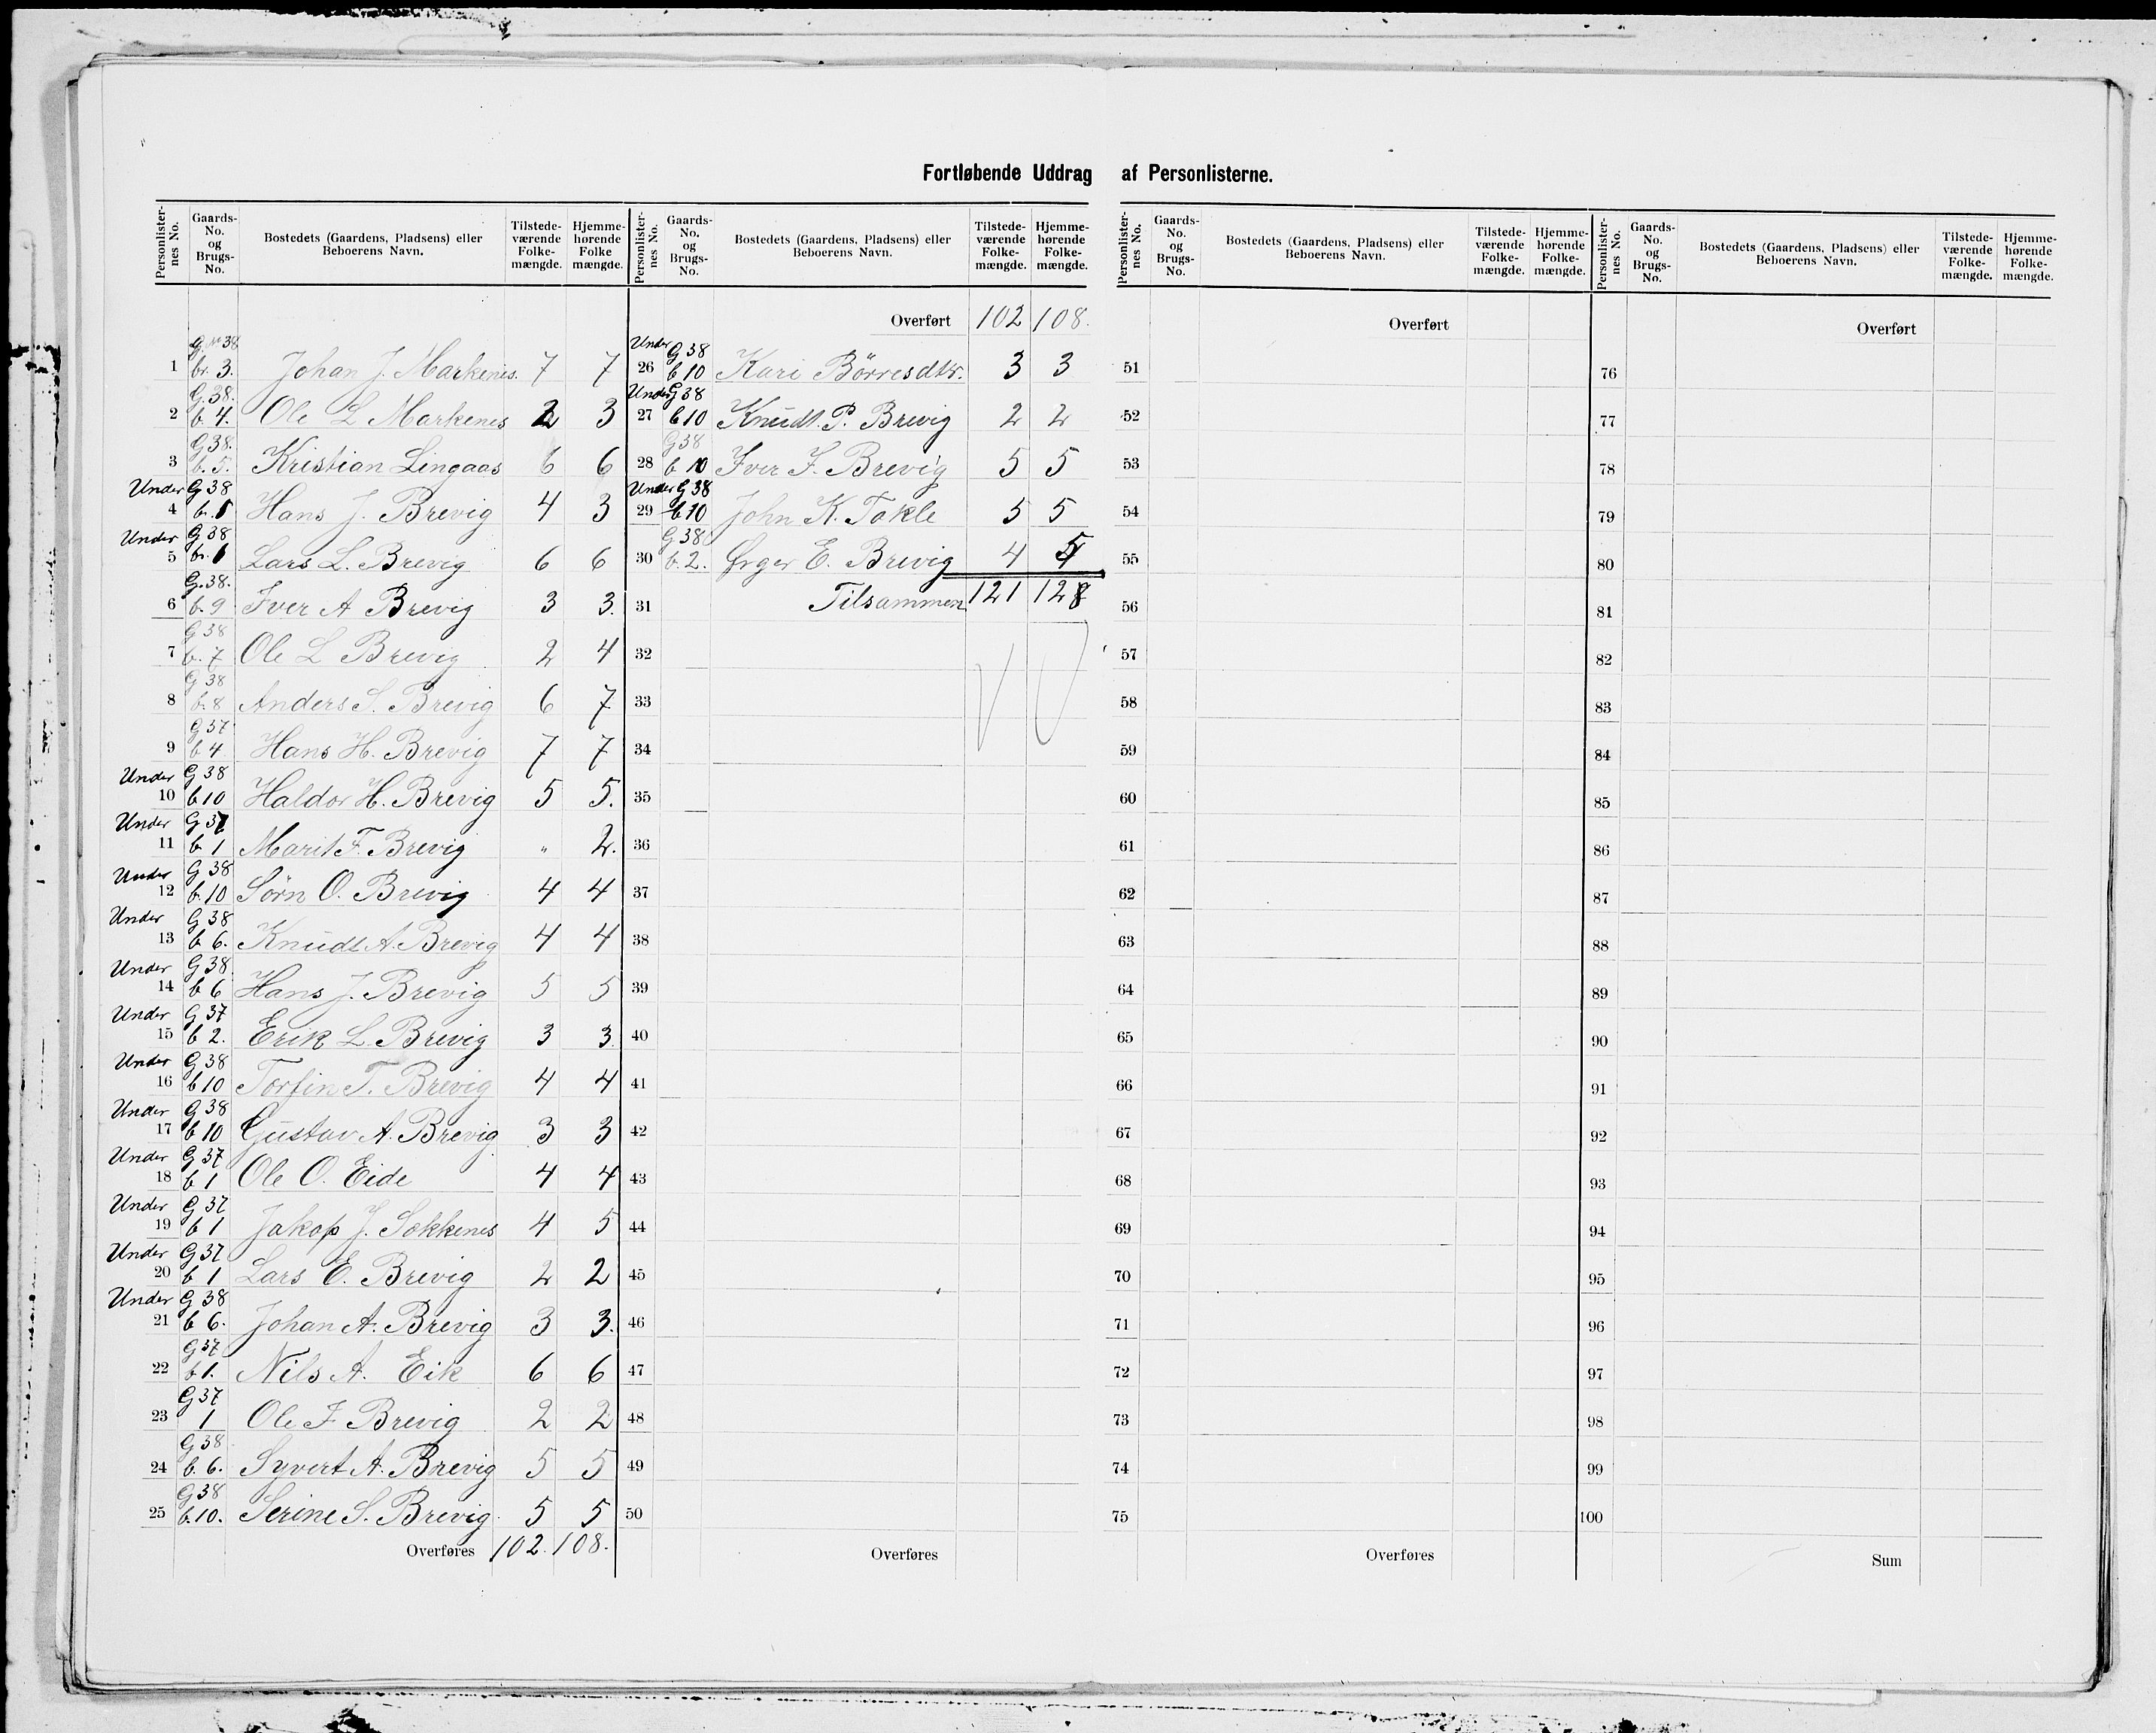 Fortløbende Uddrag af Personlisterne.
Personlister-nes No. Gaards-No. og Brugs-No. Bostedets (Gaardens, Pladsens) eller Beboerens Navn. Tilstede-værende Folke-mængde. Hjemme-hørende Folke mængde.
G. No 38
1 br. 3. Johan J. Markenes. 7 7
G. 38.
2 b. 4. Ole L Markenes 2 3
G. 38.
3 b. 5. Kristian Lingaas 6 6
Under G 38
4 br. 5 Hans J. Brevig 4 3
Under G 38
5 br. 1 Lars L. Brevig 6 6
G. 38.
6 b. 9 Iver A Brevig 3 3.
G 38
7 b. 7 Ole L Brevig 2 4
G 38
8 b. 8 Anders S. Brevig 6 7
G 37
9 b 4 Hans H. Brevig 7 7
Under G 38
10 b 10 Haldor H. Brevig 5 5.
Under G 37
11 b 1 Marit F. Brevig " 2.
Under G 38
12 b. 10 Sörn O. Brevig 4 4
Under G 38
13 b 6. Knudt A. Brevig 4 4
Under G 38.
14 b 6 Hans J. Brevig 5 5
Under G 37
15 b 2. Erik L. Brevig 3 3.
Under G 38
16 b 10 Torfin T. Brevig 4 4
Under G 38
17 b 10 Gustav A. Brevig 3 3
Under G 37
18 b 1 Ole O. Eide 4 4
Under G 37
19 b 1 Jakop J. Sokkenes 4 5
Under G 37
20 b 1 Lars E. Brevig 2 2
Under G 38
21 b 6. Johan A. Brevig 3 3.
G 37
22 b 1. Nils A. Eik 6 6
G 37
23 1 Ole F Brevig 2 2
G 38
24 b. 6. Syvert A. Brevig 5 5
G 38
25 b. 10. Serine S. Brevig. 5 5
Overføres 102. 108.
Personlister-nes No. Gaards-No. og Brugs-No. Bostedets (Gaardens, Pladsens) eller Beboerens Navn. Tilstede-værende Folke-mængde. Hjemme-hørende Folke-mængde.
Overført 102 108.
Under G 38
26 b 10 Kari Börresdtr. 3 3
Under G 38
27 b 10 Knudt. P. Brevig 2 2
G 38
28 b 10 Iver I. Brevig 5 5
Under G 38
29 b 10 John K. Takle 5 5
G 38
30 b. 2. Ørger E. Brevig 4 5
31 Tilsammen 121 128
32
33
34
35
36
37
38
39
40
41
42
43
44
45
46
47
48
49
50
Overføres
Personlister-nes No. Gaards-No. og Brugs-No. Bostedets (Gaardens, Pladsens) eller Beboerens Navn. Tilstede-værende Folke-mængde. Hjemme-hørende Folke-mængde.
Overført
51
52
53
54
55
56
57
58
59
60
61
62
63
64
65
66
67
68
69
70
71
72
73
74
75
Overføres
Personlister-nes No. Gaards-No. og Brugs-No. Bostedets (Gaardens, Pladsens) eller Beboerens Navn. Tilstede-værende Folke-mængde. Hjemme-hørende Folke-mængde.
Overført
76
77
78
79
80
81
82
83
84
85
86
87
88
89
90
91
92
93
94
95
96
97
98
99
100
Sum